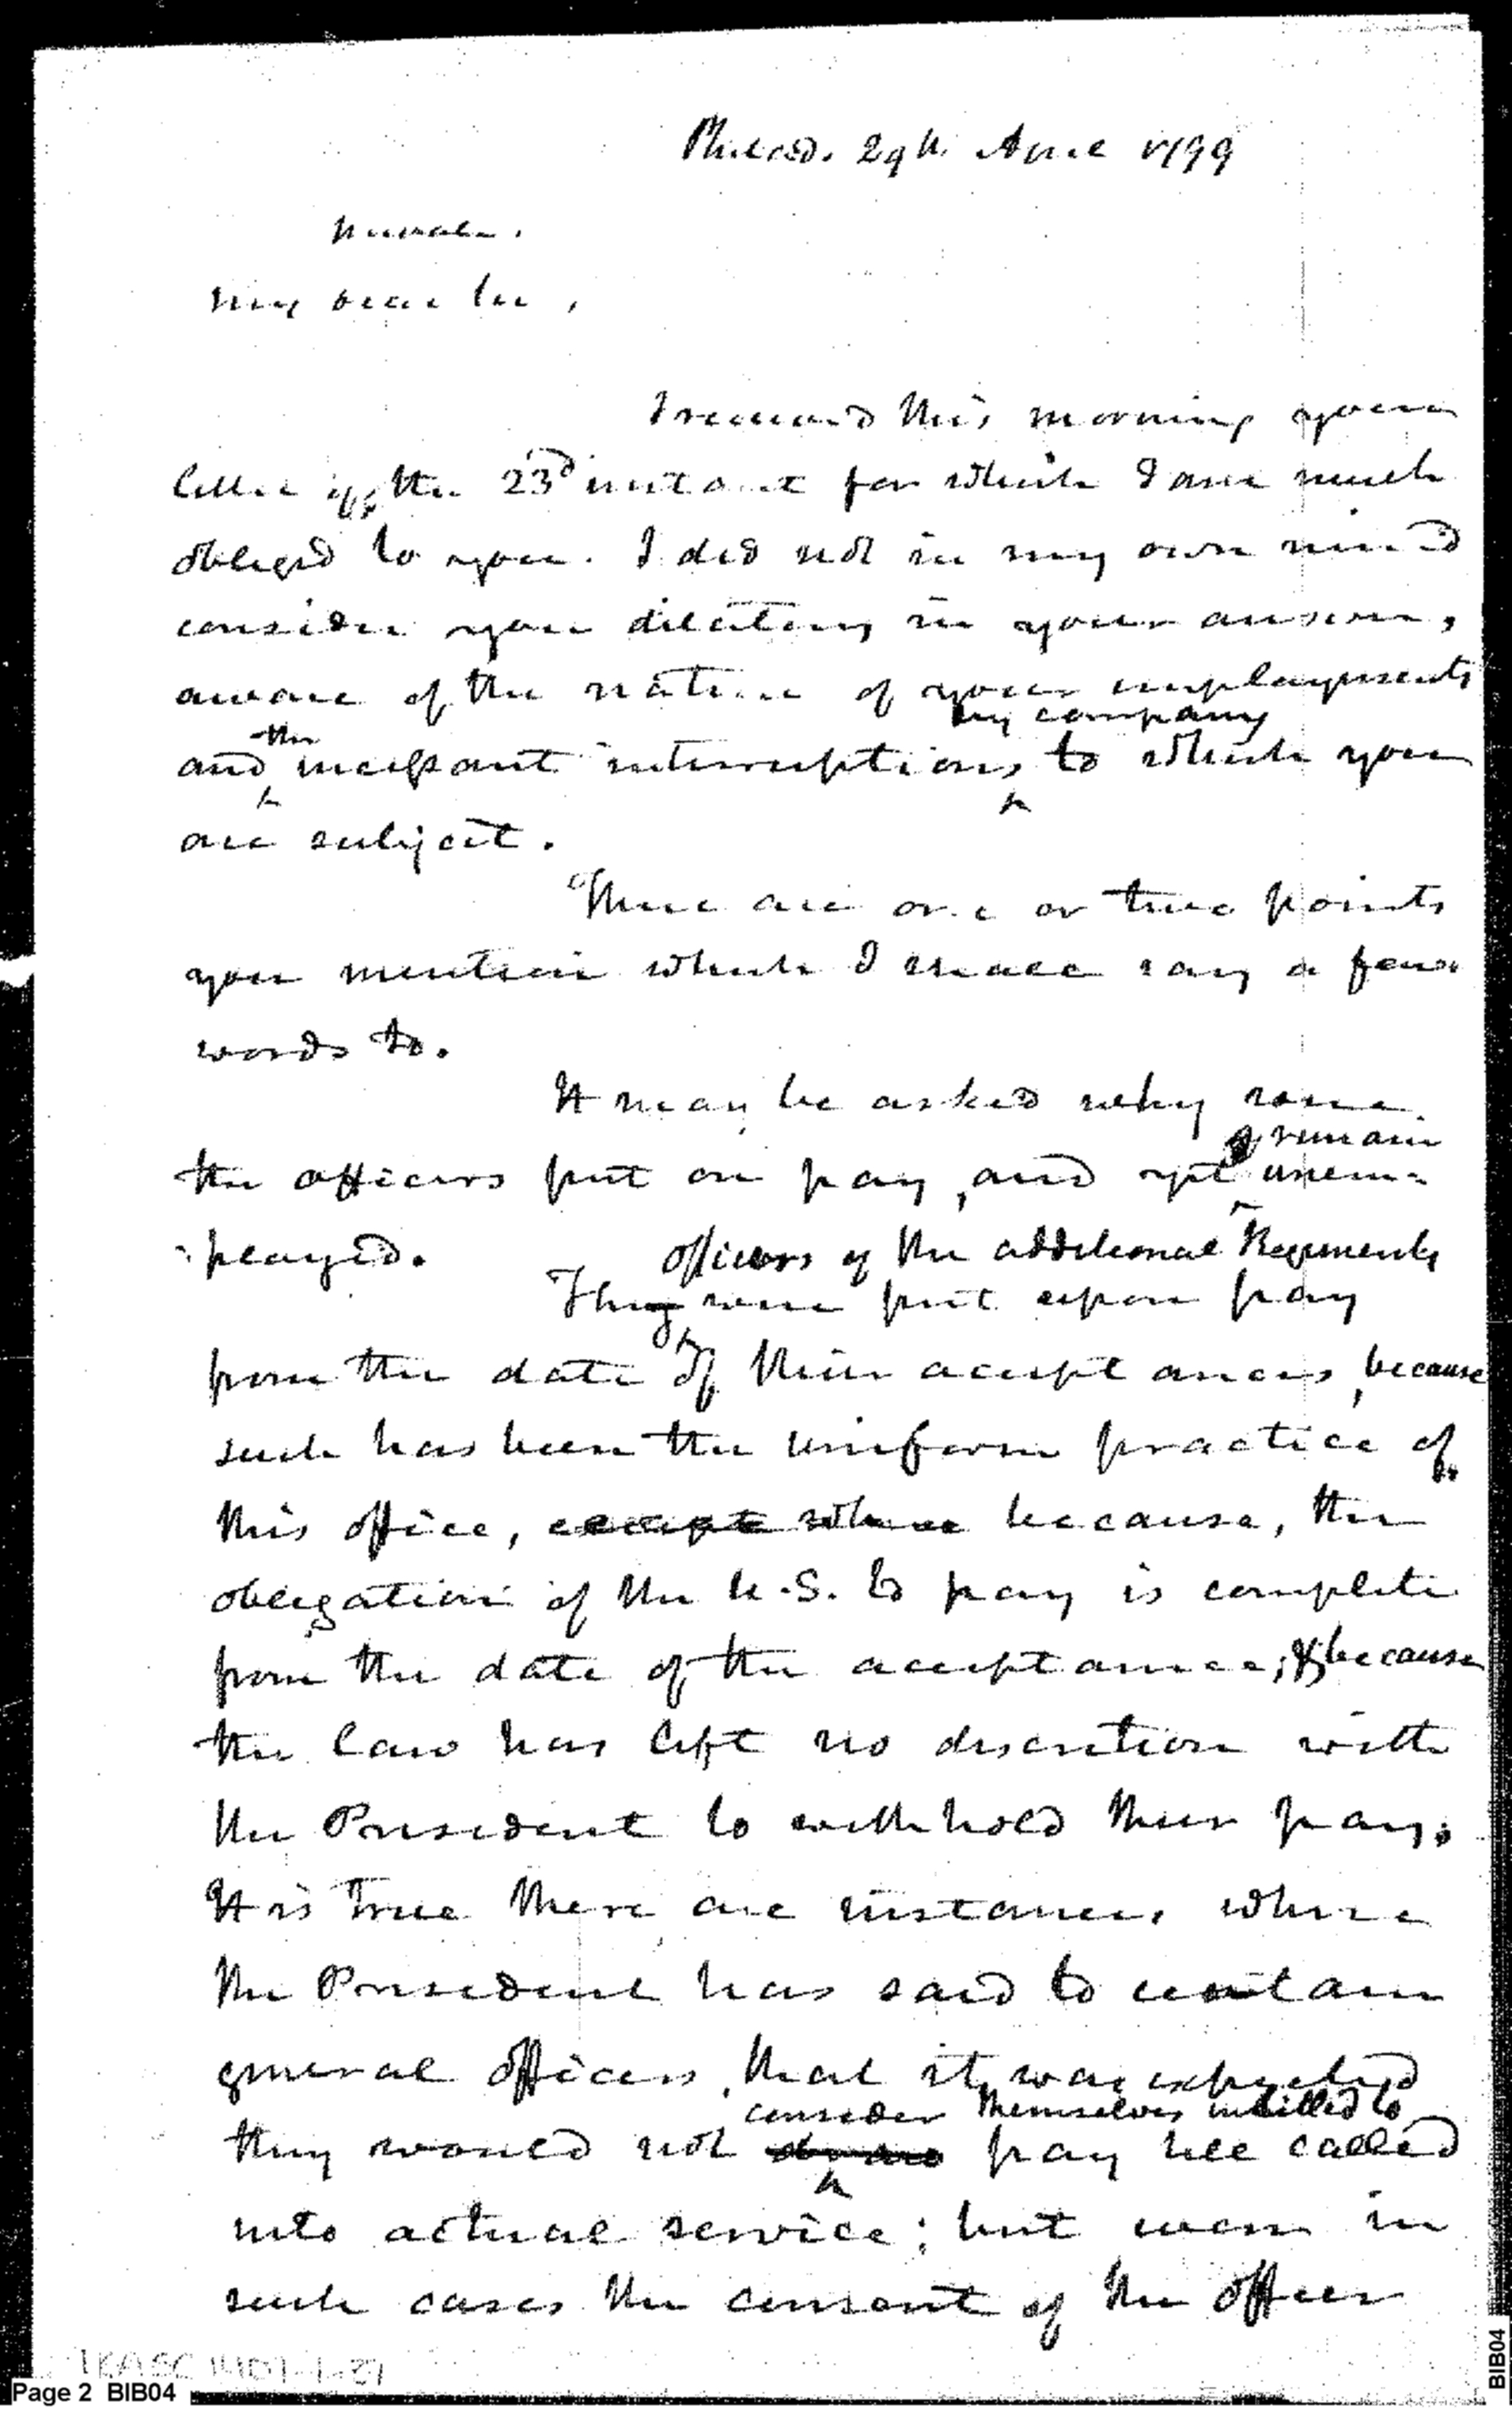 Philad. 29th April 1799
private.
My dear Sir,
I received this morning your
letter of the 23d instant for which I am much
obliged to you. I did not in my own mind
consider you dilatory in your answer,
aware of the nature of your employments
by company
the
and incessant interruptions to which you
are subject.
There are one or two points
you mention which I shall say a few
words to.
It may be asked why were
remain
the officers put on pay, and yet unem-
-ployed.
officers of the additional Regiments
They were put upon pay
from the date of their acceptances, because
such has been the uniform practice of
this office, except where because, the
obligation of the U.S. to pay is complete
from the date of the acceptance; & because
the law has left no discretion with
the President to withhold their pay.
It is true there are instances where
the President has said to certain
general officers, that it was expected
consider themselves intitled to
they would not draw pay till called
into actual service; but even in
such cases the consent of the officer
Page 2 BIB04
BIB04